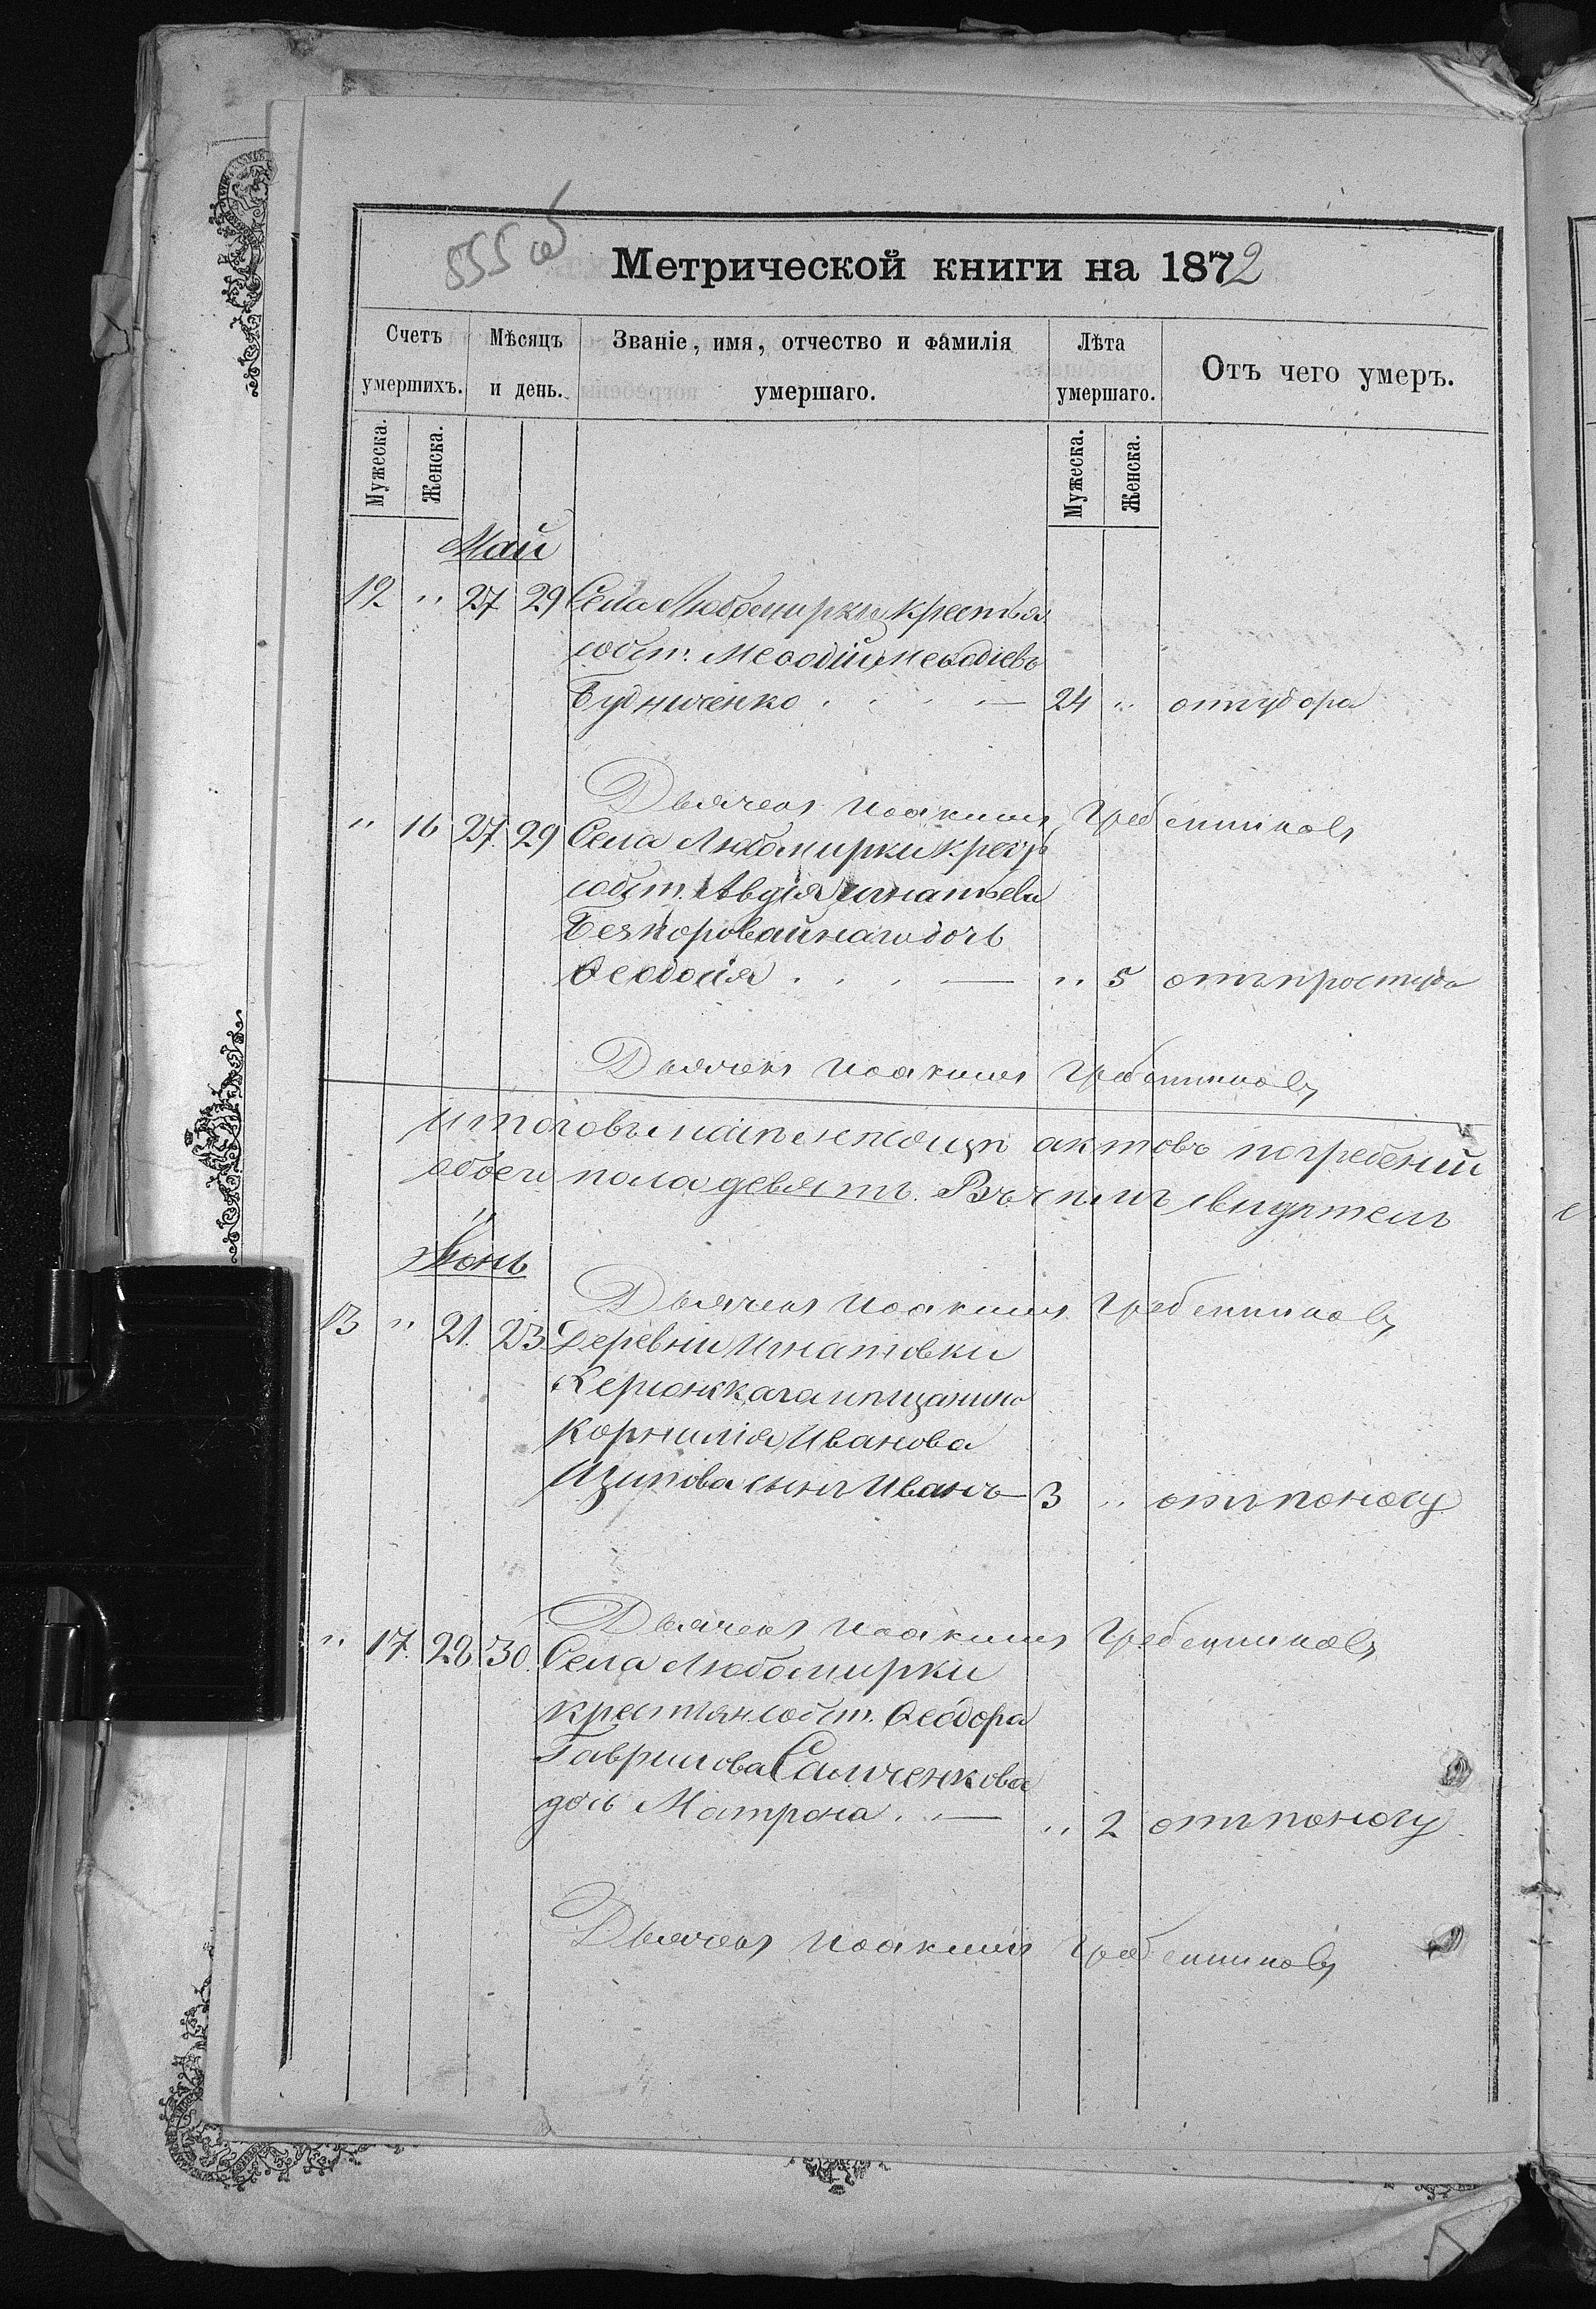 555 об
Метрической книги на 1872
Счетъ умершихъ.
Мѣсяцъ и день.
Званіе, имя, отчество и фамилія умершаго.
Лѣта умершаго.
Отъ чего умеръ.
Мужеска.
Женска.
Мужеска.
Женска.
Май
12 " 27 29 Села Любомирки крестьян
собст. Меѳодій Меѳодіевъ
Будниченко — 24 "
Дьячекъ Иоакимъ Гребенниковъ
" 16 27. 29 Села Любомирки крест
собст. Авдія Игнатьева
Безкоровайнаго дочь
Ѳеодосія — " 5 отъ простуды
Дьячекъ Иоакимъ Гребенниковъ
Итого въ маіѣ мѣсяцѣ актовъ погребеній
обоего пола девять. Въ чемъ свидѣтель
Іюнь
Дьячекъ Иоакимъ Гребенниковъ
13 " 21. 23. Деревни Игнатовки
мѣщанина
Корнилія Иванова
сынъ Иванъ — 3 " отъ поносу
Дьячекъ Иоакимъ Гребенниковъ
" 17. 28. 30. Села Любомирки
крестьян. собст. Ѳеодора
Гаврилова
дочь Матрона — " 2 отъ поносу
Дьячекъ Иоакимъ Гребенниковъ